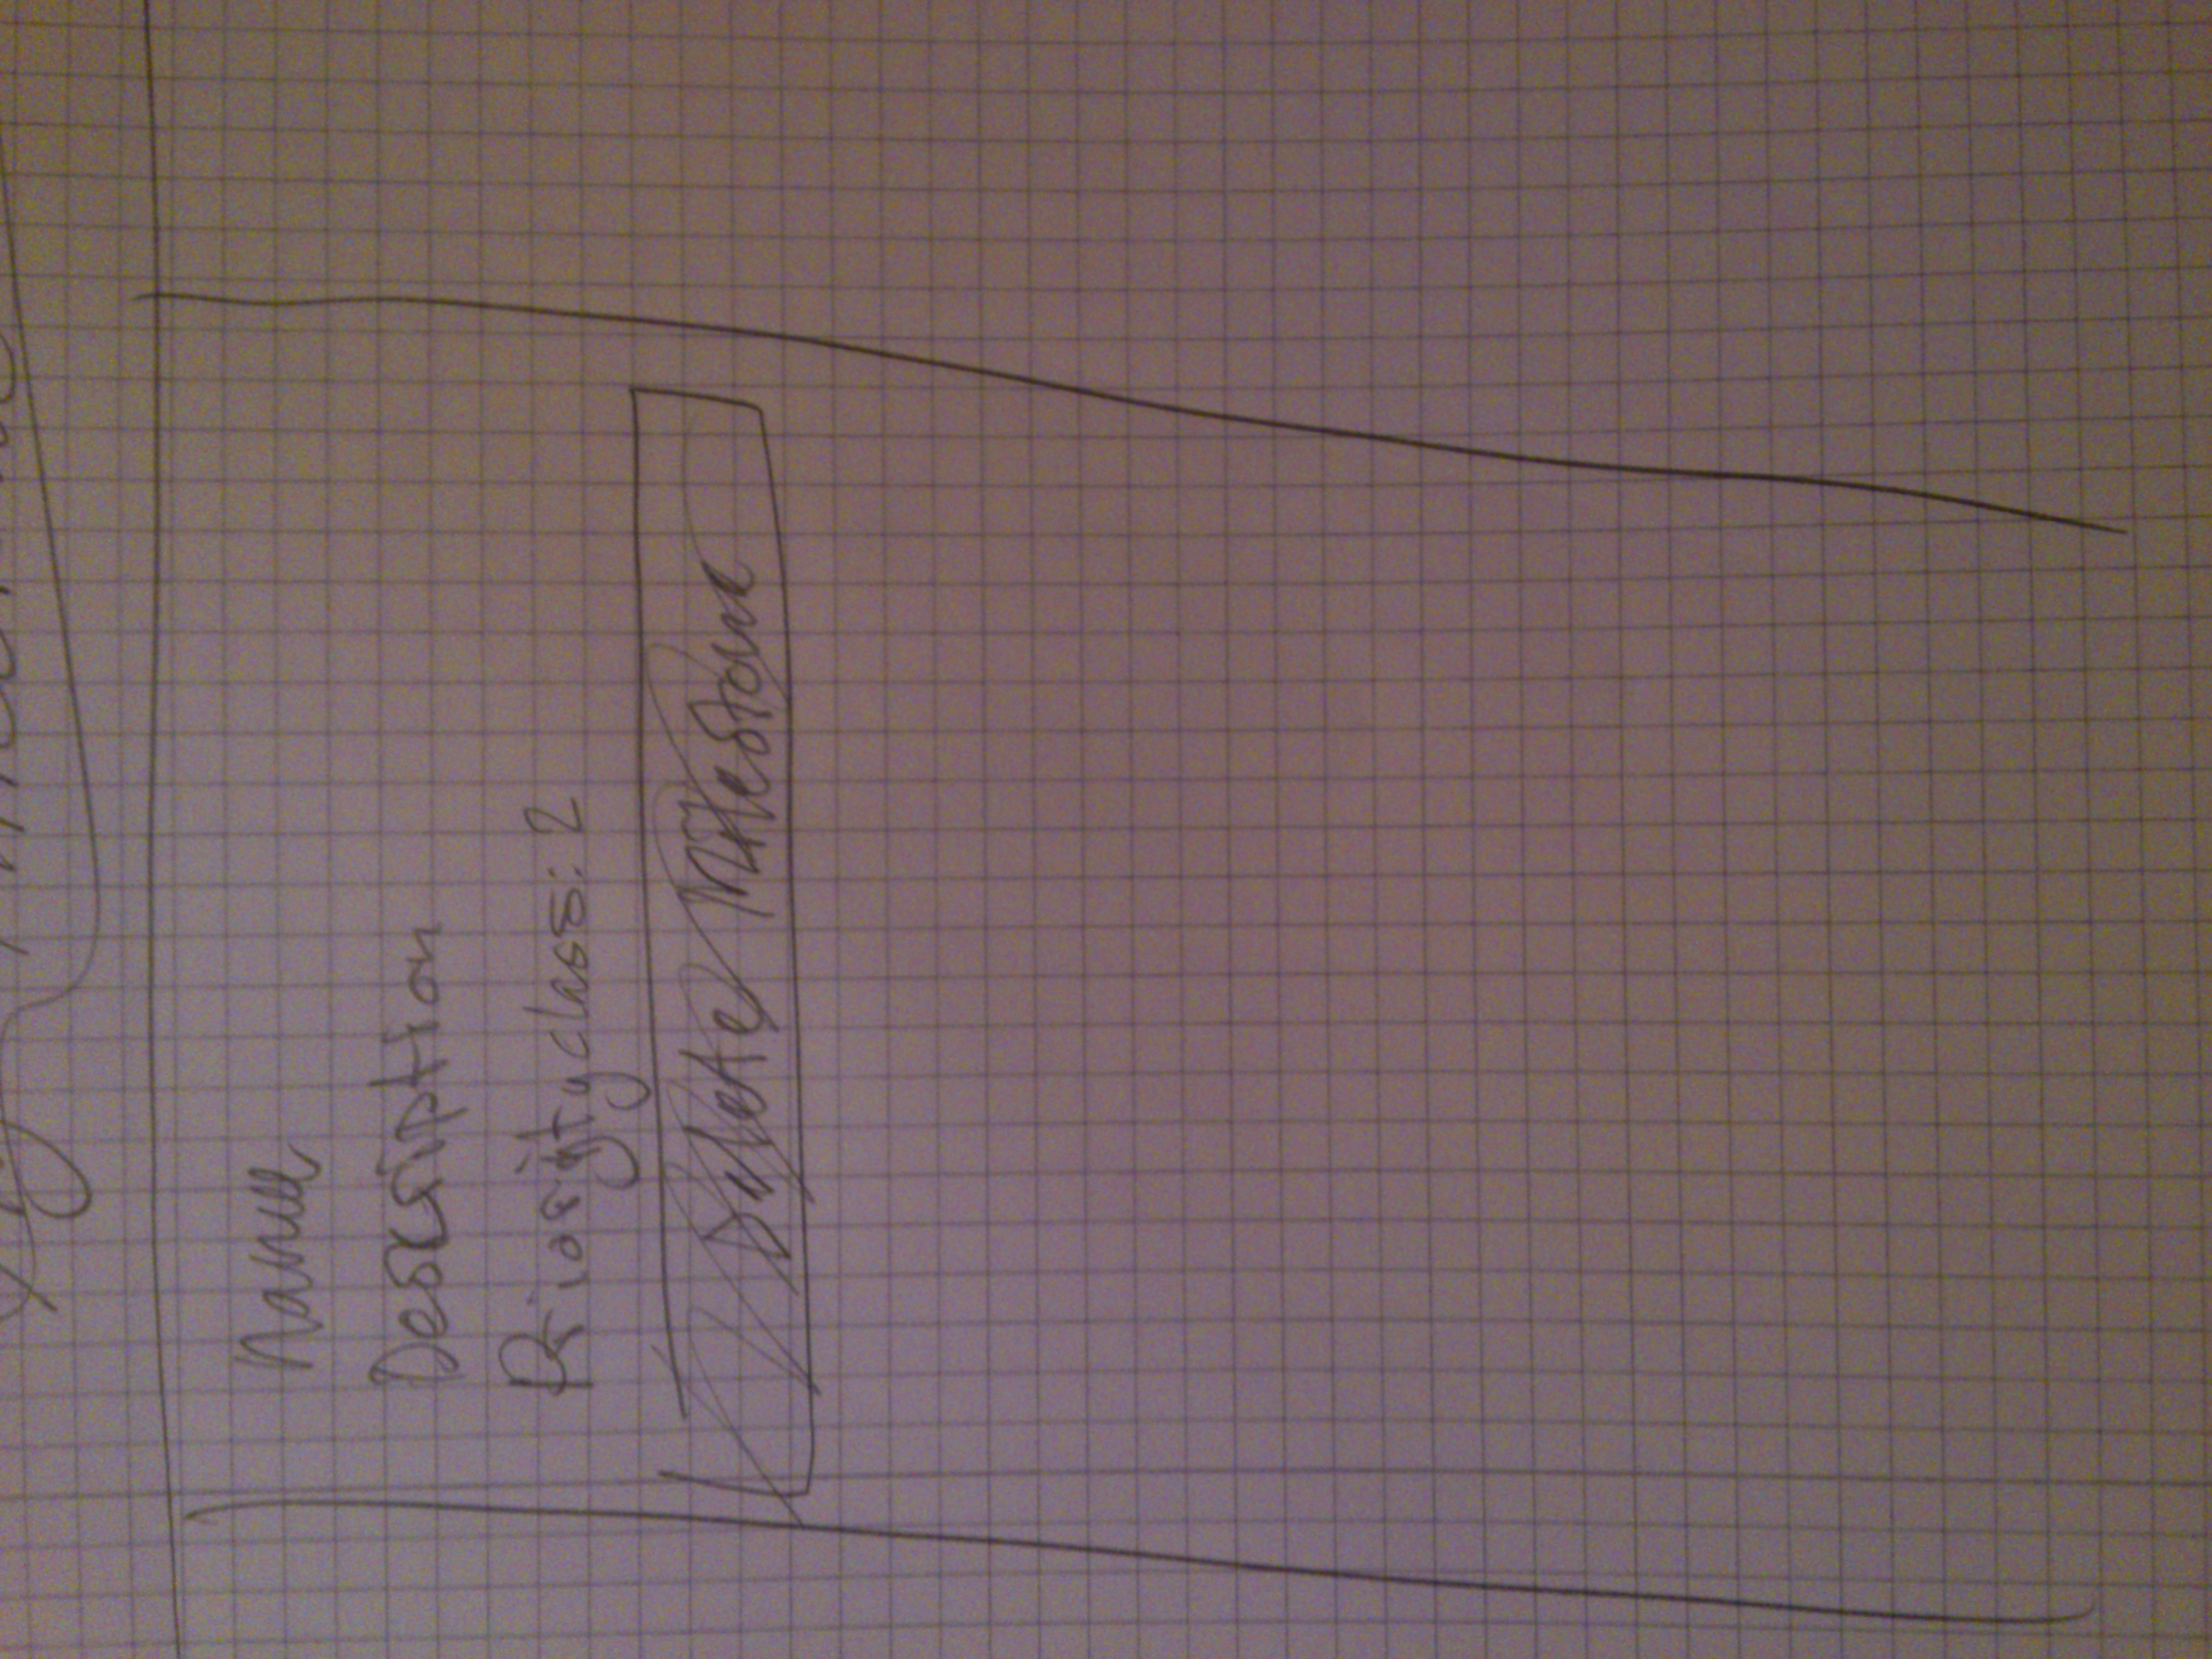 Name
Description
Priority class: 2
Delete Milestone